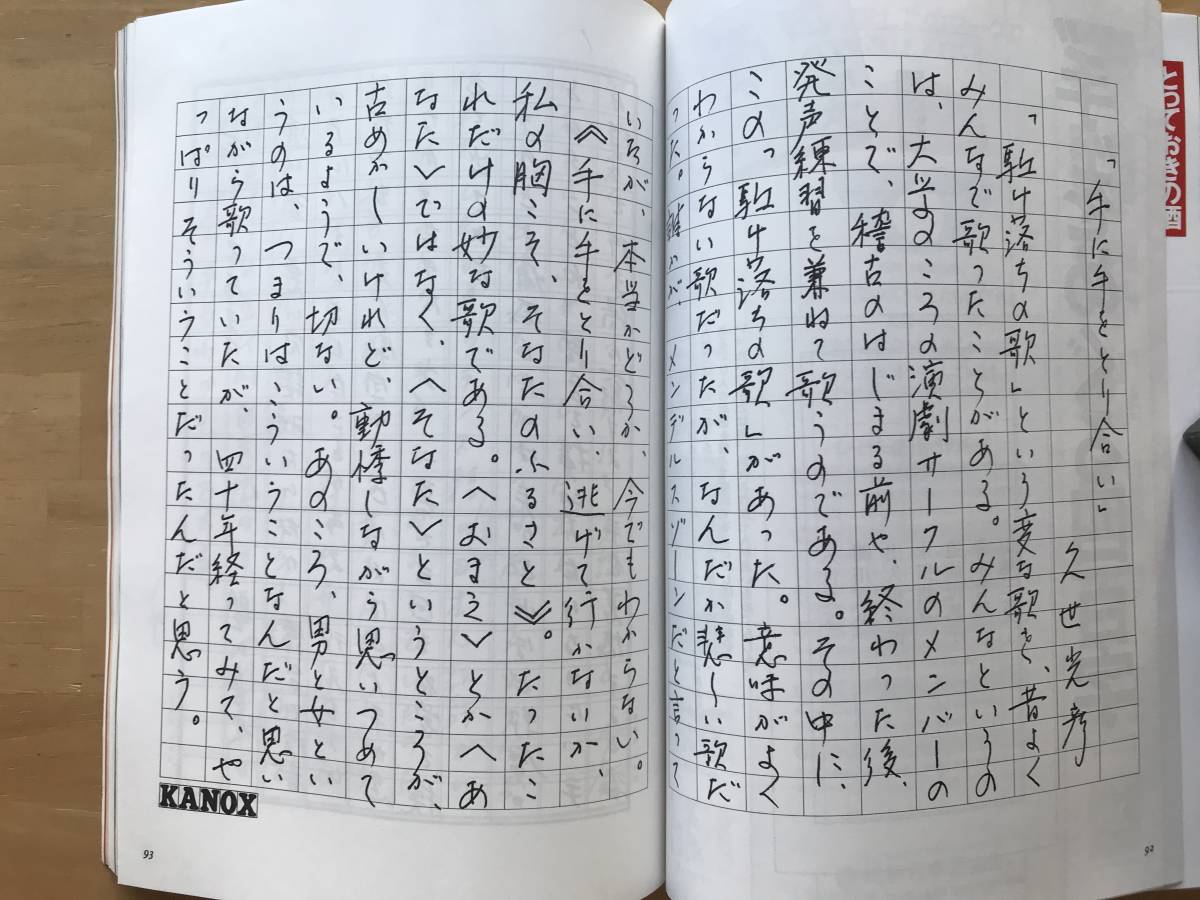 「手に手をとり合い」
久世光彦
「駈け落ちの歌」という変な歌を、昔よく
みんなで歌ったことがある。みんなというの
は、大学のころの演劇サークルのメンバーの
ことで、稽古のはじまる前や、終わった後、
発声練習を兼ねて歌うのである。その中に、
この「駈け落ちの歌」があった。意味がよく
わからない歌だったが、なんだか悲しい歌だ
った。誰かがメンデルスゾーンだと言って
いたが、本当かどうか、今でもわからない。
《手に手をとり合い、逃げて行かないか、
私の胸こそ、そなたのふるさと》。たったこ
れだけの妙な歌である。〈おまえ〉とか〈あ
なた〉ではなく、〈そなた〉というところが、
古めかしいけれど、動悸しながら思いつめて
いるようで、切ない。あのころ、男と女とい
うのは、つまりはこういうことなんだと思い
ながら歌っていたが、四十年経ってみて、や
っぱりそういうことだったんだと思う。
KANOX
93
92
とっておきの酒